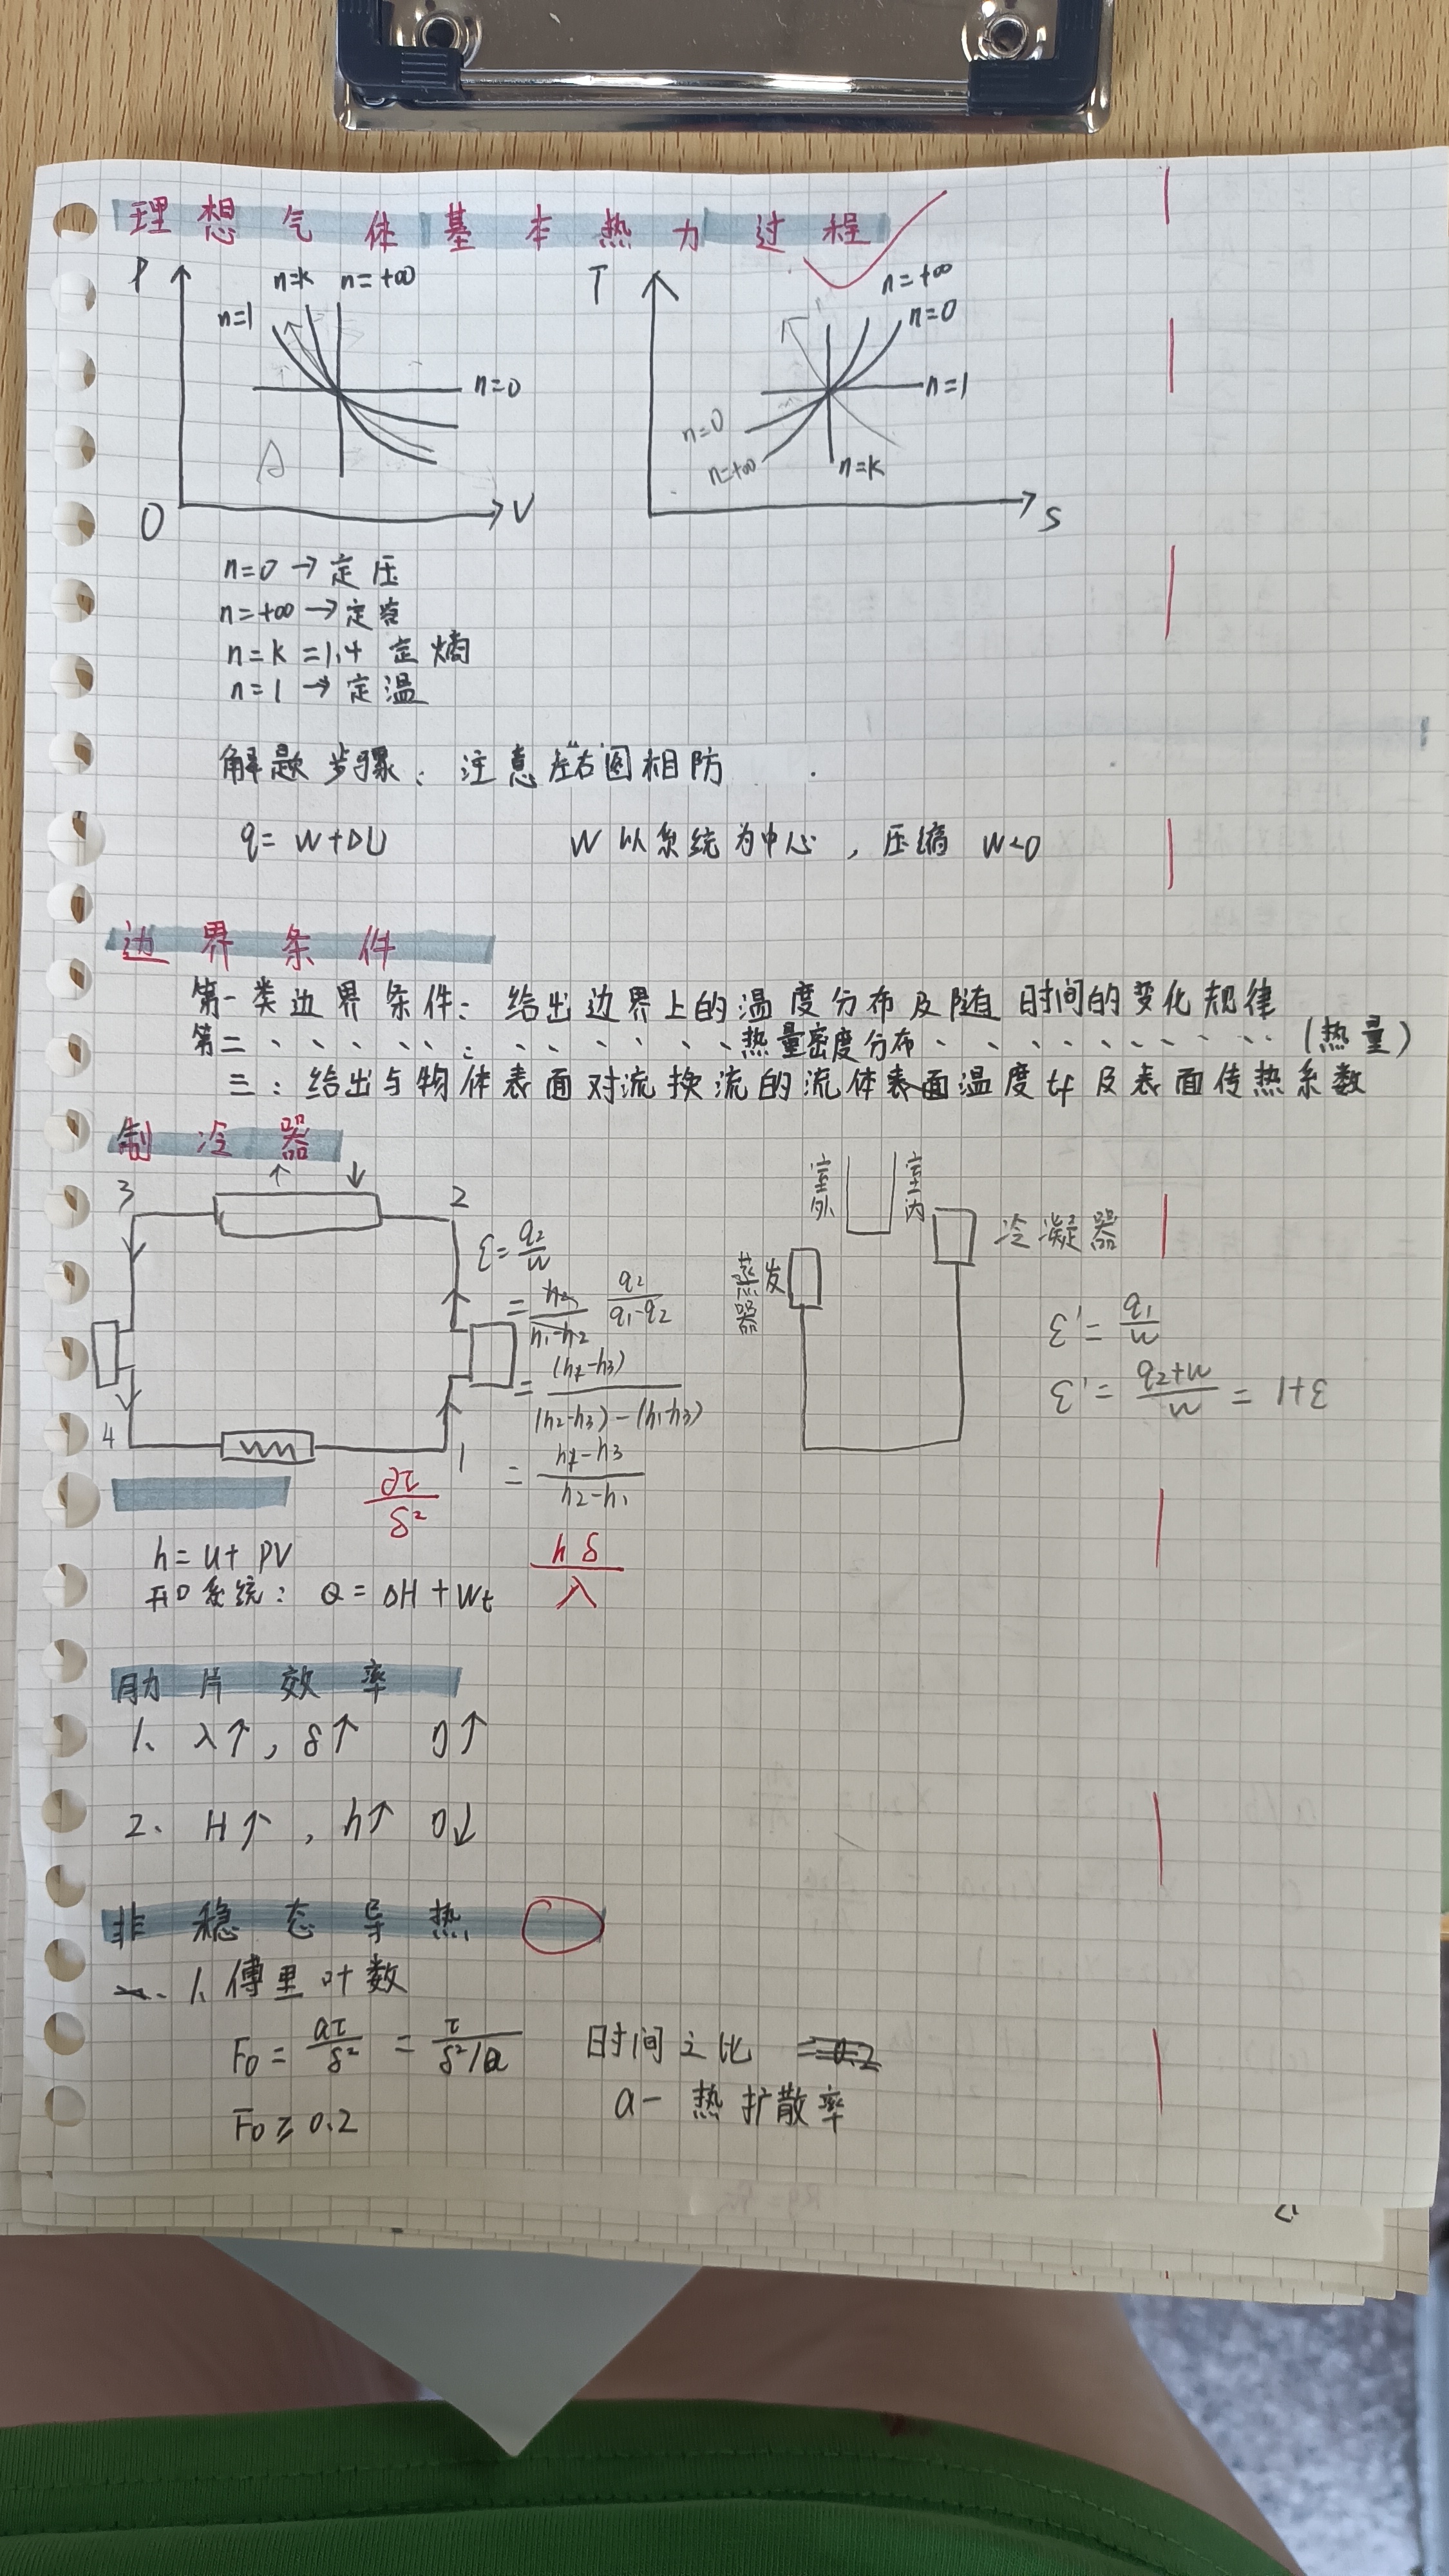 理想气体基本热力过程
P n=k n=+∞ T n=+∞
n=1 n=0
n=0 n=1
n=0
n=+∞ n=k
0 V S
n=0 → 定压
n=+∞ → 定容
n=k=1.4 定熵
n=1 → 定温
解题步骤: 注意左右图相防
q= W+ΔU W 以系统为中心, 压缩 W<0
边界条件
第一类边界条件: 给出边界上的温度分布及随时间的变化规律
第二、、、、、: 、、、、、、热量密度分布、、、、、、、、、(热量)
三: 给出与物体表面对流换流的流体表面温度tf及表面传热系数
制冷器
3 2 室外 室内
冷凝器
蒸发器
ε=q2/w
= q2/(q1-q2)
= (h1-h3)/((h2-h3)-(h1-h3))
= (h1-h3)/(h2-h1)
ε'=q1/w
ε'=(q2+w)/w=1+ε
4 1
aτ/δ²
h=u+PV
hδ/λ
开口系统: Q=ΔH+Wt
肋片效率
1、λ↑, δ↑ η↑
2、H↑, h↑ η↓
非稳态导热
一. 1. 傅里叶数
Fo=aτ/δ²=τ/(δ²/a) 时间之比
a- 热扩散率
Fo≥0.2